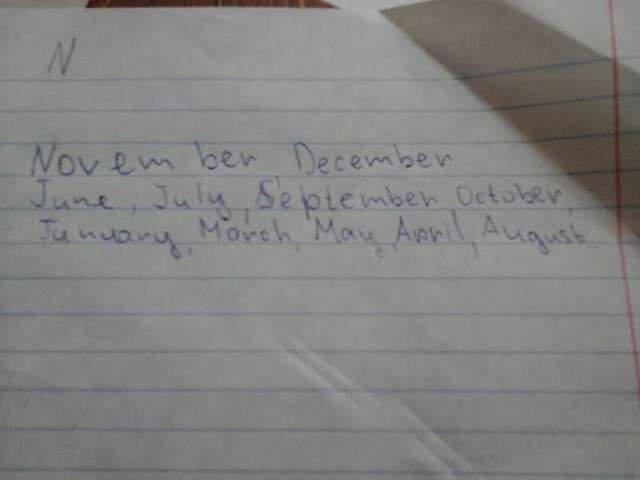 N
November December
June, July, September October,
January, March, May, April, August.